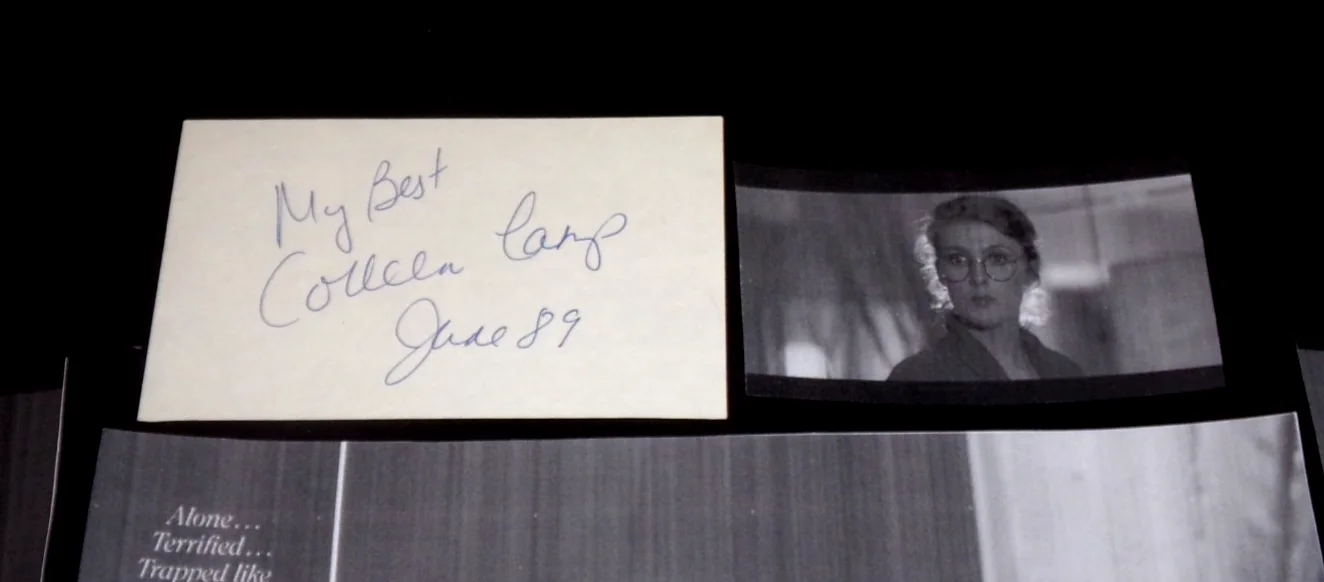 My Best
Colleen Camp
June 89
Alone...
Terrified...
Trapped like